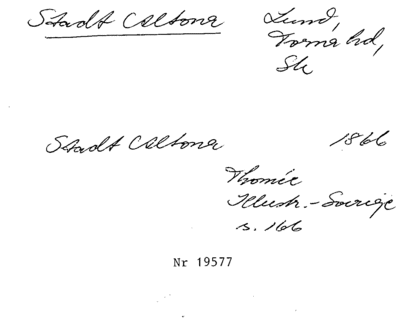 Stadt Altona
Lund,
Torna hd,
Sk
Stadt Altona 1866
Thomée
Illustr.-Sverige
s. 166
Nr 19577